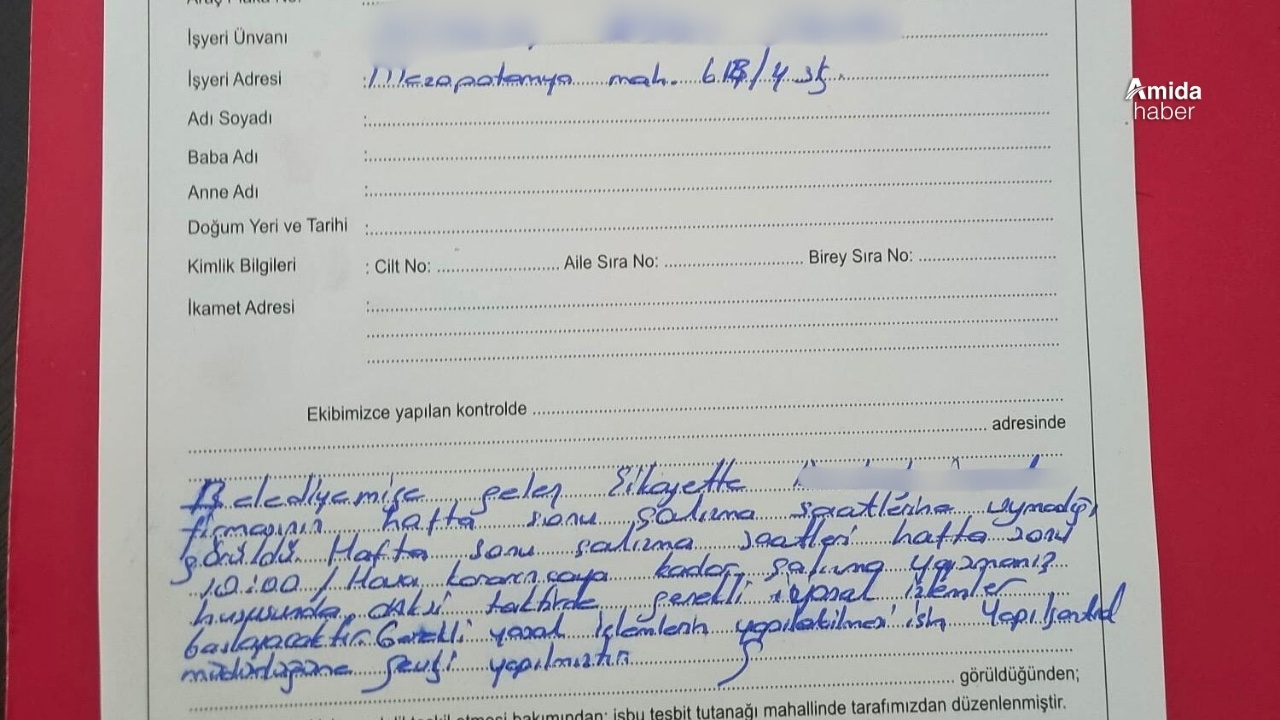 Araç Plaka No:
İşyeri Ünvanı
İşyeri Adresi : Mezapotamya mah. /4 sk.
Amida
haber
Adı Soyadı :
Baba Adı :
Anne Adı :
Doğum Yeri ve Tarihi :
Kimlik Bilgileri : Cilt No: Aile Sıra No: Birey Sıra No:
İkamet Adresi :
Ekibimizce yapılan kontrolde
adresinde
Belediyemize gelen Şikayette
firmasının hafta sonu çalışma saatlerine uymadığı
görüldü. Hafta sonu çalışma saatleri hafta sonu
10:00 / Hava kararıncaya kadar çalışma yapmanız
hususunda, aksi taktirde gerekli yasal işlemler
başlayacaktır. Gerekli yasal işlemlerin yapılabilmesi için Yapı kontrol
müdürlüğüne sevki yapılmıştır
görüldüğünden;
etmesi bakımından; işbu tesbit tutanağı mahallinde tarafımızdan düzenlenmiştir.